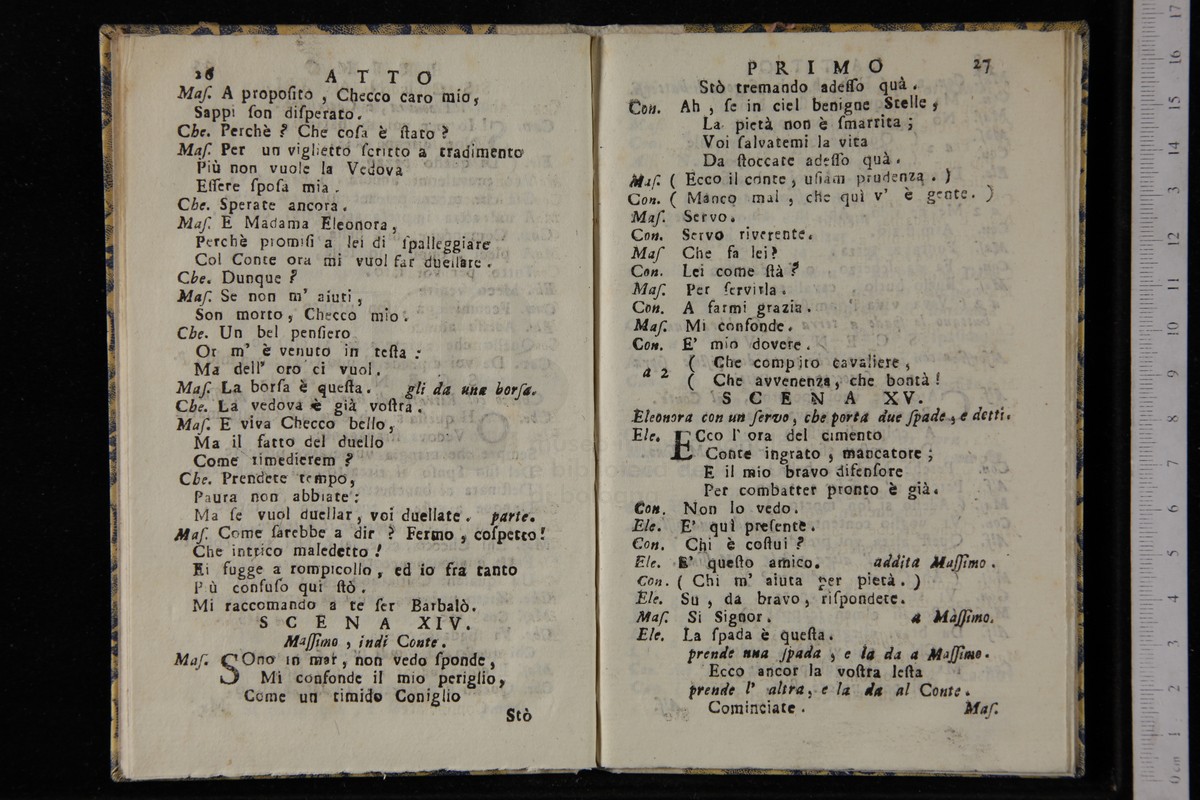 26 ATTO
Maſ. A propoſito , Checco caro mio,
Sappi ſon diſperato.
Che. Perchè ? Che coſa è ſtato ?
Maſ. Per un viglietto ſcritto a tradimento
Più non vuole la Vedova
Eſſere ſpoſa mia .
Che. Sperate ancora.
Maſ. E Madama Eleonora,
Perchè promiſi a lei di ſpalleggiare
Col Conte ora mi vuol far duellare .
Che. Dunque ?
Maſ. Se non m' aiuti,
Son morto, Checco mio.
Che. Un bel penſiero
Or m' è venuto in teſta :
Ma dell' oro ci vuol.
Maſ. La borſa è queſta. gli da una borſa.
Che. La vedova è già voſtra.
Maſ. E viva Checco bello,
Ma il fatto del duello
Come rimedierem ?
Che. Prendete tempo,
Paura non abbiate:
Ma ſe vuol duellar, voi duellate. parte.
Maſ. Come ſarebbe a dir ? Fermo, coſpetto!
Che intrico maledetto !
Ei fugge a rompicollo, ed io fra tanto
Più confuſo qui ſtò.
Mi raccomando a te ſer Barbalò.
SCENA XIV.
Maſſimo, indi Conte.
Maſ. SOno in mar, non vedo ſponde,
Mi confonde il mio periglio,
Come un timido Coniglio
Stò
PRIMO 27
Stò tremando adeſſo quà.
Con. Ah, ſe in ciel benigne Stelle,
La pietà non è ſmarrita ;
Voi ſalvatemi la vita
Da ſtoccate adeſſo quà.
Maſ. ( Ecco il conte, uſiam prudenza . )
Con. ( Manco mal , che quì v' è gente. )
Maſ. Servo.
Con. Servo riverente.
Maſ Che fa lei?
Con. Lei come ſtà ?
Maſ. Per ſervirla.
Con. A farmi grazia.
Maſ. Mi confonde.
Con. E' mio dovere.
a 2 ( Che compito cavaliere,
( Che avvenenza, che bontà!
SCENA XV.
Eleonora con un ſervo, che porta due ſpade, e detti.
Ele. ECco l' ora del cimento
Conte ingrato , mancatore ;
E il mio bravo difenſore
Per combatter pronto è già.
Con. Non lo vedo.
Ele. E' quì preſente.
Con. Chi è coſtui ?
Ele. E' queſto amico. addita Maſſimo.
Con. ( Chi m' aiuta per pietà. )
Ele. Su , da bravo, riſpondete.
Maſ. Si Signor. a Maſſimo.
Ele. La ſpada è queſta.
prende una ſpada , e la da a Maſſimo.
Ecco ancor la voſtra leſta
prende l' altra, e la da al Conte.
Cominciate . Maſ.